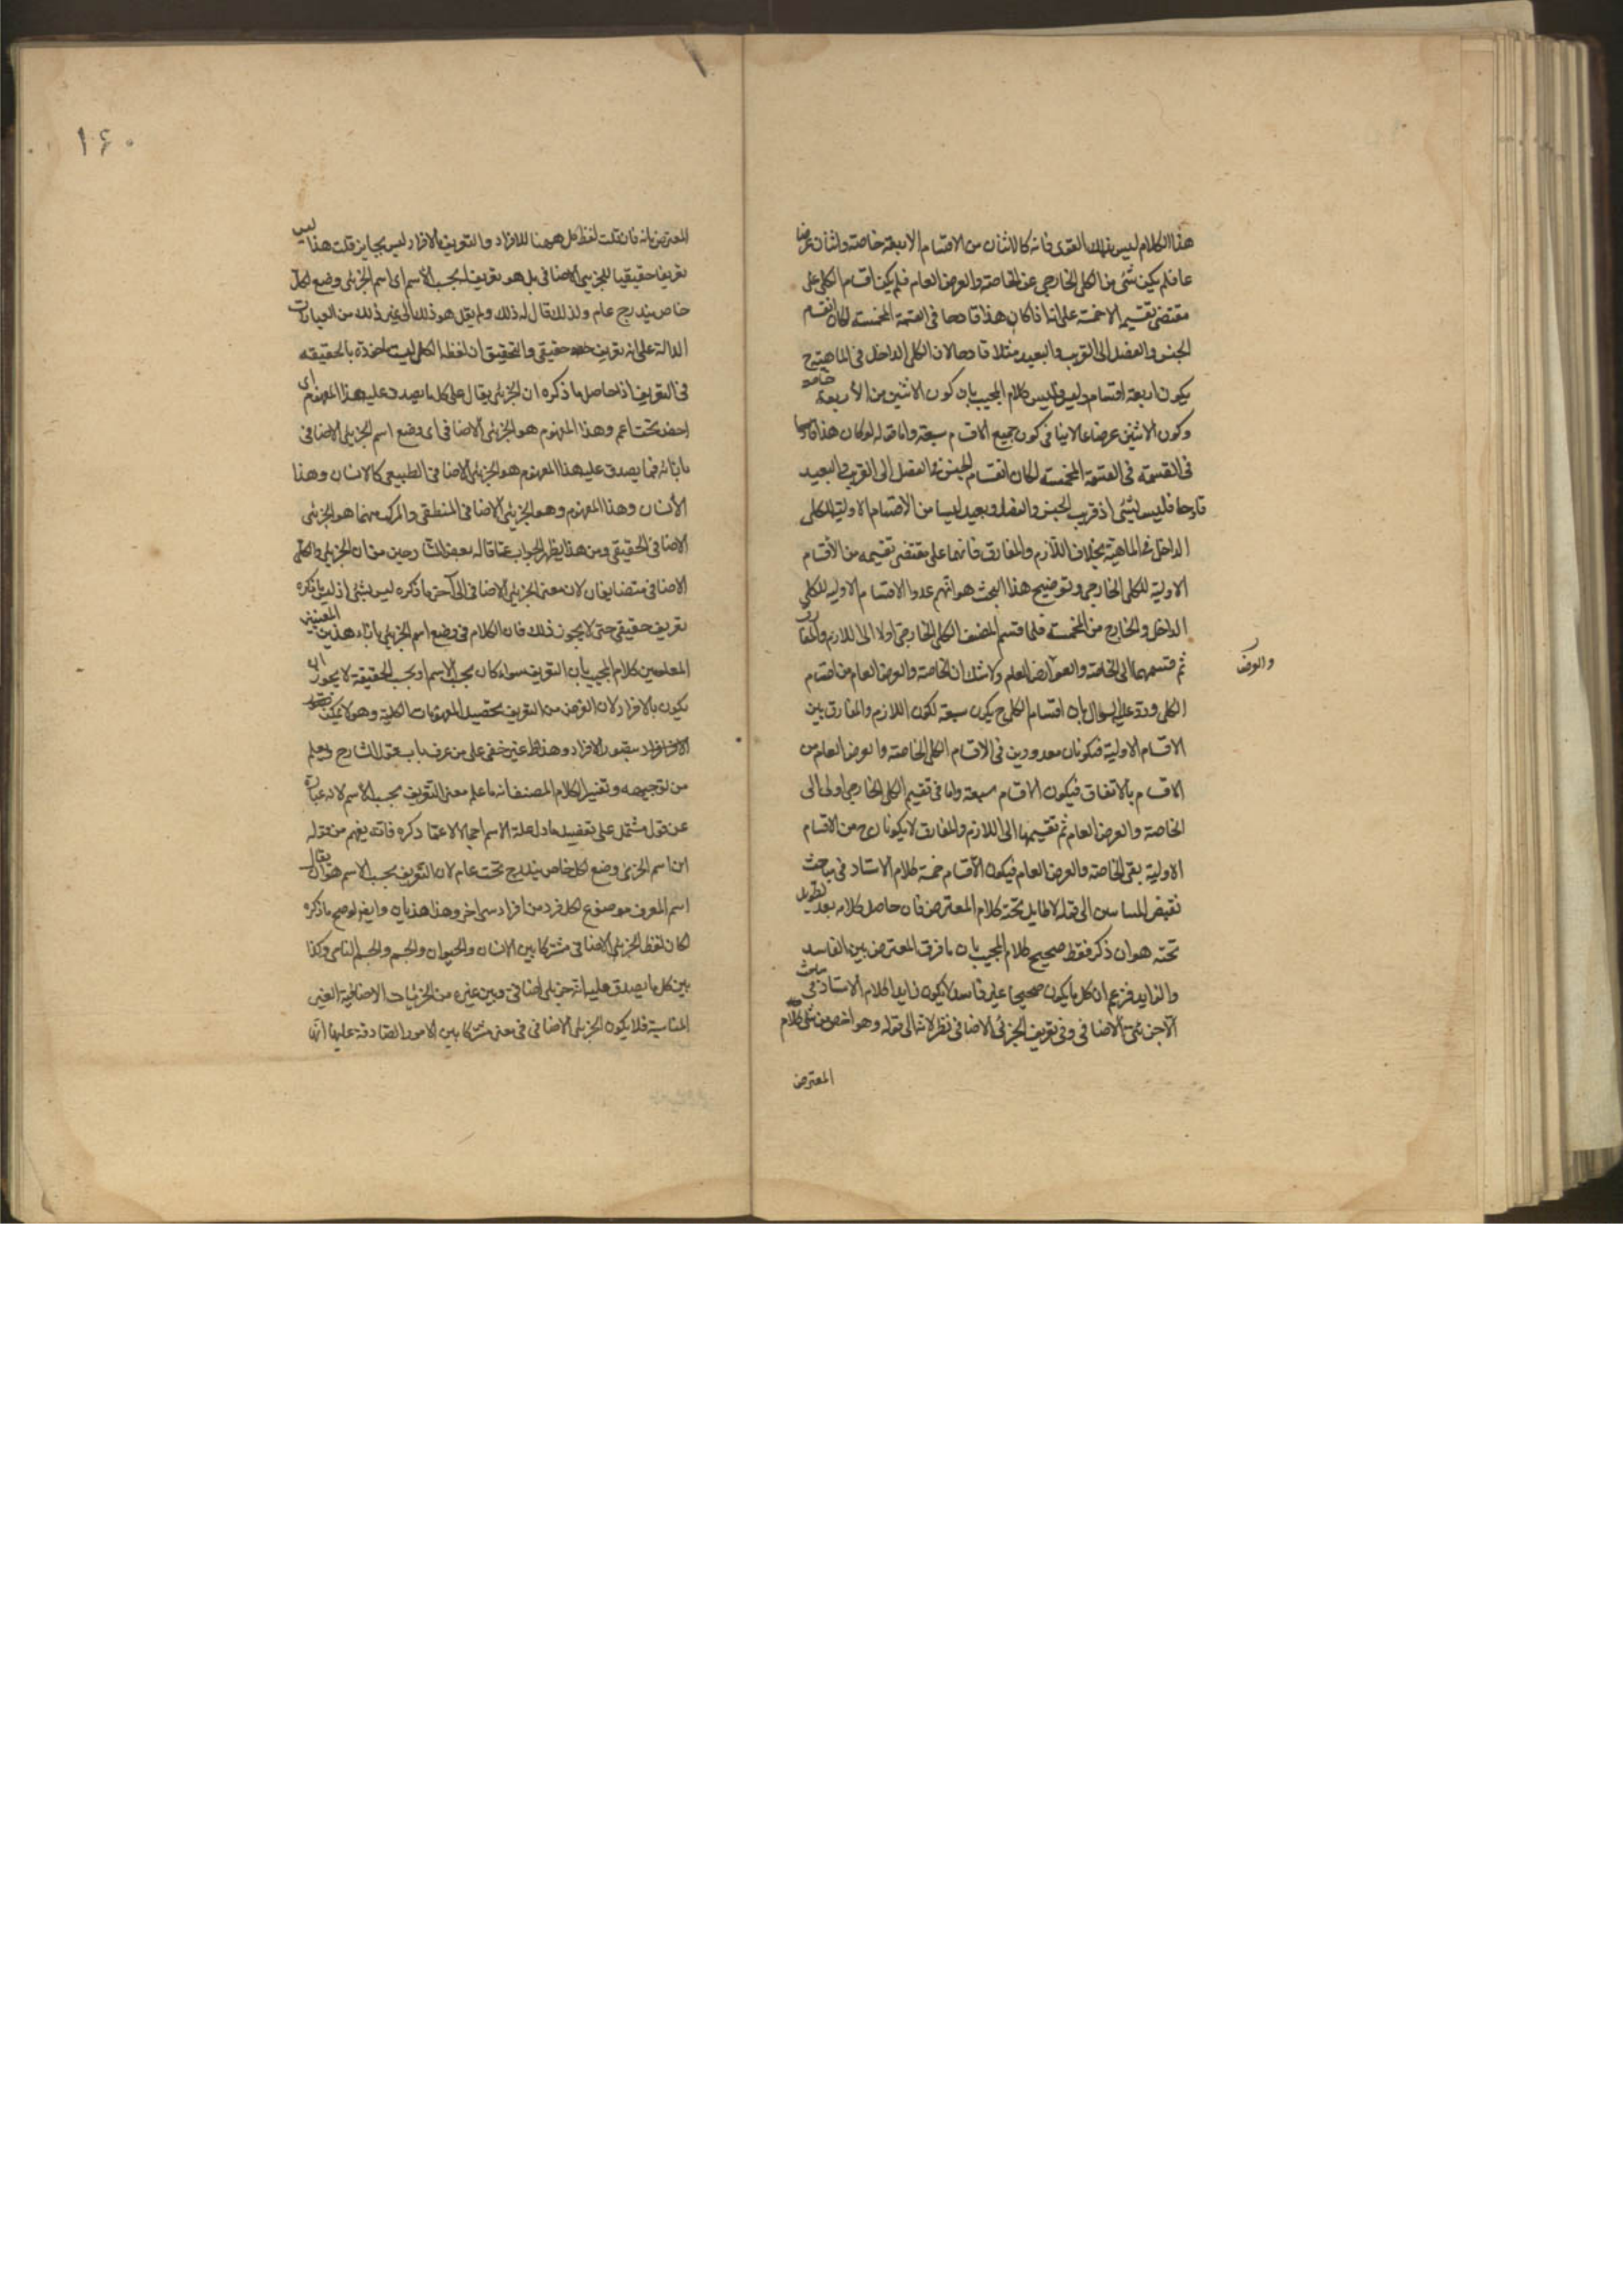 هذا الكلام ليس بذلك القوى فانه كالاثنان من الاقسام الاربعة خاصة واثنان عرضا
عا فلم يكن شئ من الكلى الخارجى عن الخاصة والعرض العام فلم يكن اقسام الكلى على
مقتضى تقسيمه الا خمسة على انا اذا كان هذا قادحا فى القسمة المخمسة لكان انقسام
الجنس والفصل الى القريب والبعيد مثلا قادحا لان الكلى الداخل فى الماهية ح
يكون اربعة اقسام وليس فليس كلام المجيب بان كون الاثنين من الأربعة خاصة
وكون الاثنين عرضا عاما لا ينافى كون جميع الاقسام سبعة واما قوله لو كان هذا قادحا
فى القسمة فى القسمة المخمسة لكان انقسام الجنس والفصل الى القريب والبعيد
قادحا فليس بشئ اذ قريب الجنس والفصل وبعيده ليسا من الاقسام الاولية للكلى
الداخل فى الماهية بخلاف اللازم والمفارق فانهما على مقتضى تقسيمه من الأقسام
الاولية للكلى الخارجى وتوضيح هذا البحث هو انهم عدوا الاقسام الاولية للكلى
الداخل والخارج من المخمسة فلما قسم المصنف الكلى الخارجى اولا الى اللازم والمفارق
ثم قسمهما الى الخاصة والعوارض العام ولا شك ان الخاصة والعرض العام من اقسام
والعرض
الكلى ورد عليه السؤال بان اقسام الكلى ح يكون سبعة لكون اللازم والمفارق بين
الاقسام الاولية فيكونان معدودين فى الاقسام الكلى الخاصة والعرض العام من
الاقسام بالاتفاق فيكون الاقسام سبعة واما فى تقسيم الكلى الخارجى اولا الى
الخاصة والعرض العام ثم تقسيمهما الى اللازم والمفارق لا يكونان ح من الاقسام
الاولية بقى الخاصة والعرض العام فيكون الأقسام خمسة كلام الاستاد فى مباحث
نقيض المتساويين الى قوله لا طايل تحته كلام المعترض فان حاصل كلامه بعد تطويل
تحته هو ان ذكر فقط صحيح كلام المجيب بان ما فرق المعترض بين الفاسد
والزايد فزعم ان كل ما يكون صحيحا غير فاسد لا يكون زايدا كلام الاستاد فى مباحث
الجزئى الاضافى وفى تعريف الجزئى الاضافى نظر لانه الى قوله وهو اخص من شئ كلام
المعترض
١٦٠
المعترض بانه فان قلت لفظ كل ههنا للافراد والتعريف بالافراد ليس بجايز قلت هذا ليس
تعريفا حقيقيا للجزيى الاضافى بل هو تعريف بحسب الأسم اى اسم الجزئى وضع لكل
خاص يندرج عام ولذلك قال له ذلك ولم يقل هو ذلك الى غير ذلك من العبارات
الدالة على انه تعريف حقيقى والتحقيق ان لفظة الكل ليست ماخوذة بالحقيقه
فى التعريف اذ حاصل ما ذكره ان الجزئى يقال على كل ما يصدق عليه هذا المفهوم اى
اخص تحت اعم وهذا المفهوم هو الجزئى الأضافى اى وضع اسم الجزيئى الاضافى
بازائه فما يصدق عليه هذا المفهوم هو الجزئى الاضافى الطبيعى كالانسان وهذا
الأنسان وهذا المفهوم وهو الجزيئى الاضافى المنطقى والمركب منهما هو الجزئى
الاضافى الحقيقى ومن هذا يظهر الجواب عما قاله بعض الشارحين من ان الجزيئى والكلى
الاضافى متضايفان لان معنى الجزيئى الاضافى الى آخر ما ذكره ليس بشئ اذ ليس ما ذكره
تعريف حقيقى حتى لا يجوز ذلك فان الكلام فى وضع اسم الجزيئى بازاء هذين المعنيين
المعلومين كلام المجيب بأن التعريف سواء كان بحسب الاسم او بحسب الحقيقة لا يجوز ان
يكون بالافراد لان الغرض من التعريف تحصيل المفهومات الكلية وهو لا يمكن
الافراد بتصور الافراد وهذا ظ غير خفى على من عرف باب قول الشارح وليعلم
من توجيهه وتفسير الكلام المصنف انه ما علم معنى التعريف بحسب الأسم لانه عبارة
عن قول مشتمل على تفصيل ما دل علة الاسم اجمالا لا عما ذكره فانه يفهم من قوله
ان اسم الجزئى وضع لكل خاص يندرج تحت عام لان التعريف بحسب الاسم هو ان يقال
اسم المعرف موضوع لكل فرد من افراد شئ اخر وهذا هذيان وايضا لو صح ما ذكره
لكان لفظ الجزيئى الاضافى مشتركا بين الانسان والحيوان والجسم والجسم النامى وكذا
بين كل ما يصدق عليه انه جزيئى اضافى وبين غيره من الجزئيات الاضافية الغير
المتناهية فلا يكون الجزيئى الاضافى فى معنى مشتركا بين الامور الصادقة عليها انها